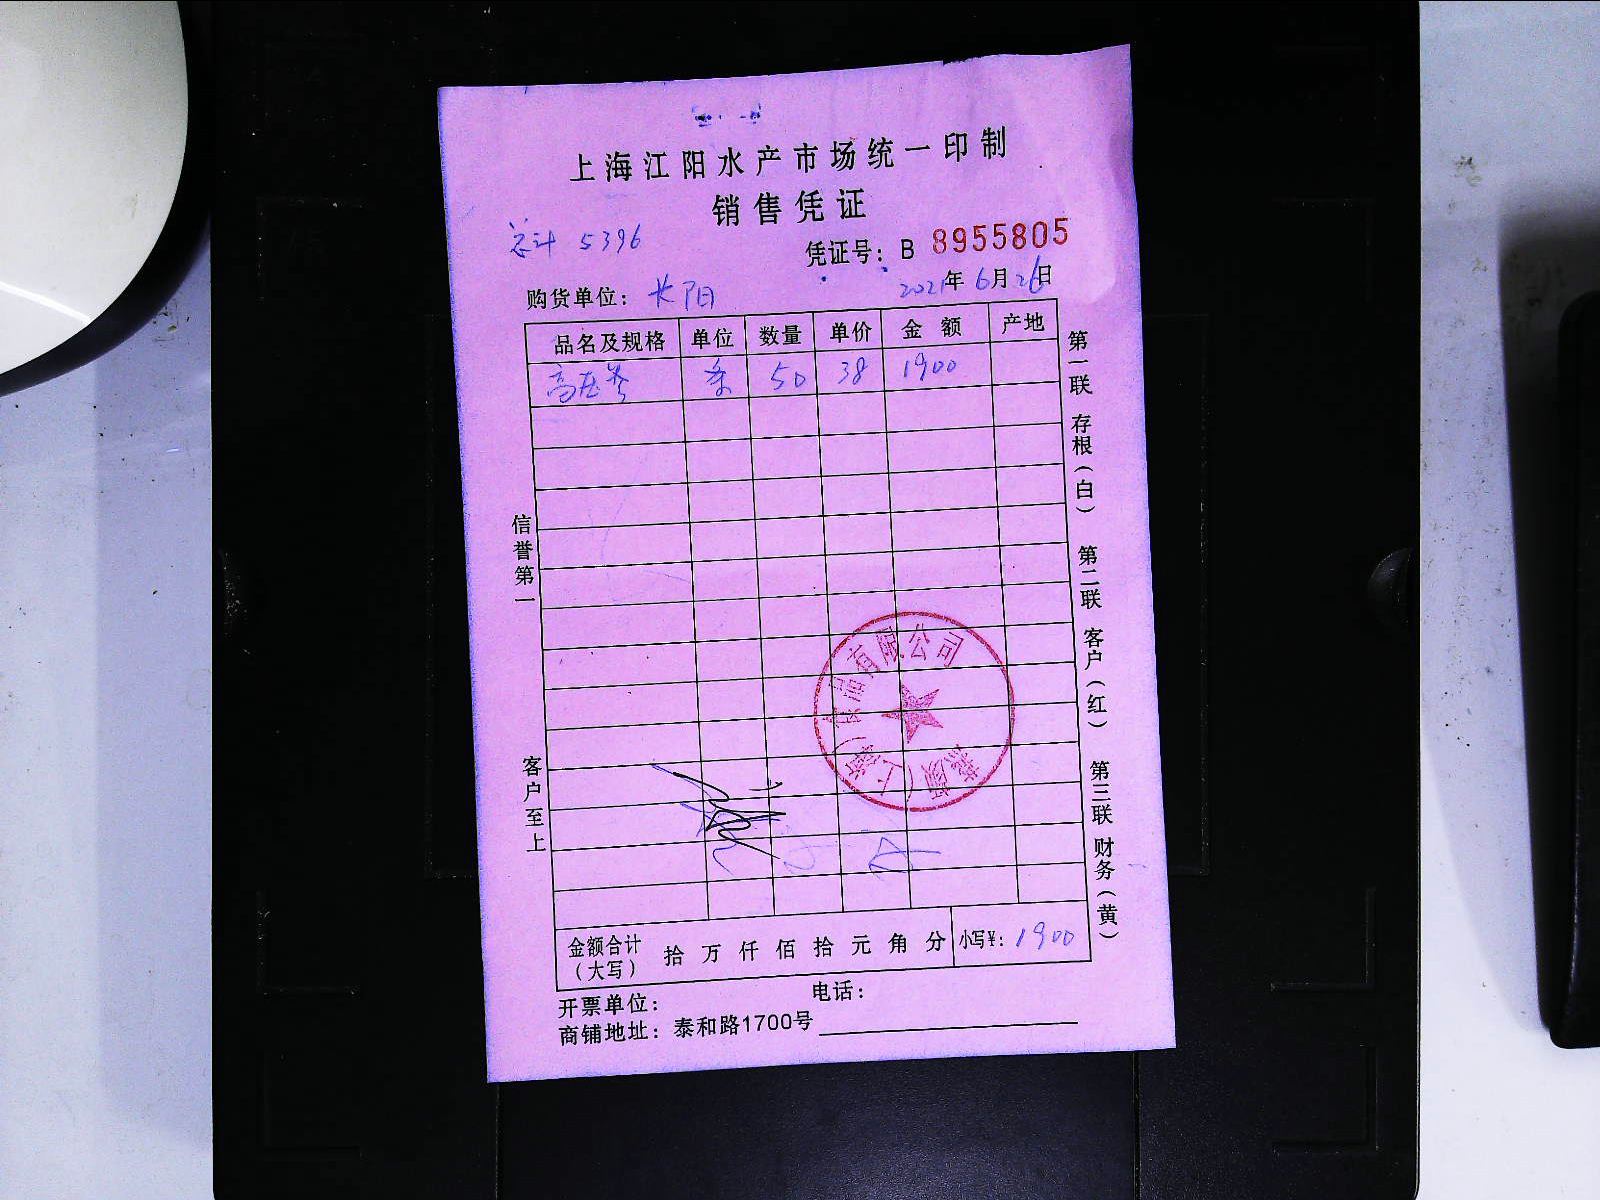 上海江阳水产市场统一印制
销售凭证
总计 5396
凭证号：B 8955805
购货单位：长阳
2021年6月26日
品名及规格 单位 数量 单价 金额 产地
高压参 条 50 38 1900
信誉第一
客户至上
第一联 存根（白） 第二联 客户（红） 第三联 财务（黄）
食品有限公司
（上海）
金额合计（大写） 拾 万 仟 佰 拾 元 角 分 小写¥：1900
开票单位： 电话：
商铺地址：泰和路1700号